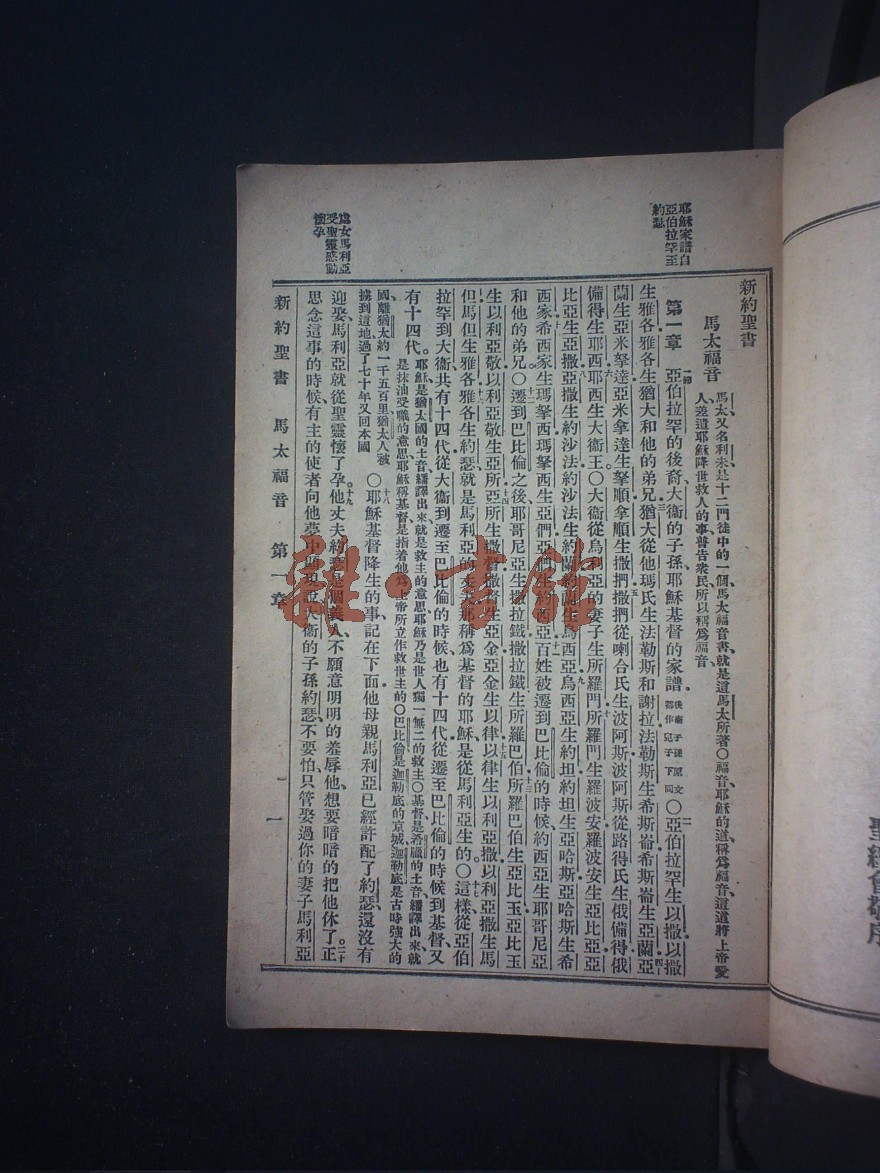 耶穌家譜自
亞伯拉罕至
約瑟
新約聖書
馬太福音
馬太又名利未是十二門徒中的一個馬太福音書就是這馬太所著〇福音耶穌的道稱爲福音這道將上帝愛
人差遣耶穌降世救人的事普告衆民所以稱爲福音
第一章 一節亞伯拉罕的後裔大衞的子孫耶穌基督的家譜後裔子孫原文都作兒子下同〇二亞伯拉罕生以撒以撒
生雅各雅各生猶大和他的弟兄三猶大從他瑪氏生法勒斯和謝拉法勒斯生希斯崙希斯崙生亞蘭四亞
蘭生亞米拿達亞米拿達生拿順拿順生撒捫五撒捫從喇合氏生波阿斯波阿斯從路得氏生俄備得俄
備得生耶西六耶西生大衞王〇大衞從烏利亞的妻子生所羅門七所羅門生羅波安羅波安生亞比亞亞
比亞生亞撒八亞撒生約沙法約沙法生約蘭約蘭生烏西亞九烏西亞生約坦約坦生亞哈斯亞哈斯生希
西家十希西家生瑪拏西瑪拏西生亞們亞們生約西亞十一百姓被遷到巴比倫的時候約西亞生耶哥尼亞
和他的弟兄〇十二遷到巴比倫之後耶哥尼亞生撒拉鐵撒拉鐵生所羅巴伯十三所羅巴伯生亞比玉亞比玉
生以利亞敬以利亞敬生亞所十四亞所生撒督撒督生亞金亞金生以律十五以律生以利亞撒以利亞撒生馬
但馬但生雅各十六雅各生約瑟就是馬利亞的丈夫那稱爲基督的耶穌是從馬利亞生的〇十七這樣從亞伯
拉罕到大衞共有十四代從大衞到遷至巴比倫的時候也有十四代從遷至巴比倫的時候到基督又
有十四代耶穌是猶太國的土音繙譯出來就是救主的意思耶穌乃是世人獨一無二的救主〇基督是希臘的土音繙譯出來就
是抹油受職的意思耶穌稱基督是指着他爲上帝所立作救世主的〇巴比倫是迦勒底的京城迦勒底是古時強大的
國離猶太約一千五百里猶太人被
擄到這地過了七十年又回本國
〇十八耶穌基督降生的事記在下面他母親馬利亞已經許配了約瑟還沒有
迎娶馬利亞就從聖靈懷了孕十九他丈夫約瑟是個義人不願意明明的羞辱他想要暗暗的把他休了二十正
思念這事的時候有主的使者向他夢中顯現說大衞的子孫約瑟不要怕只管娶過你的妻子馬利亞
新約聖書 馬太福音 第一章
一
女馬利亞
受聖靈感動
懷孕
聖經會敬序
雜·書館